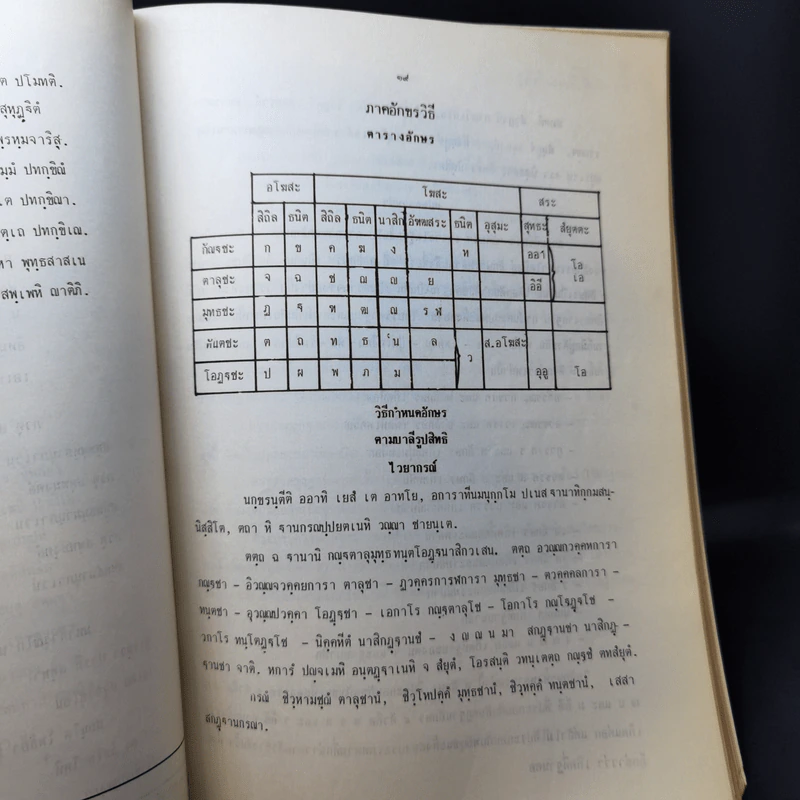 ต ปโมทติ.
สุหุฏฺฐิตํ
พฺรหฺมจาริสุ.
มฺมํ ปทกฺขิณํ
ต ปทกฺขิณา.
ตฺเถ ปทกฺขิเณ.
หา พุทฺธสาสเน
สพฺเพหิ ญาติภิ.
๑๙
ภาคอักขรวิธี
ตารางอักษร
อโฆสะ โฆสะ สระ
สิถิล ธนิต สิถิล ธนิต นาสิก อัฑฒสระ ธนิต อุสุมะ สุทธะ สํยุตตะ
กัณฐชะ ก ข ค ฆ ง ห ออา โอ เอ
ตาลุชะ จ ฉ ช ฌ ญ ย อิอี
มุทธชะ ฏ ฐ ฑ ฒ ณ ร ฬ
ทันตชะ ต ถ ท ธ น ล ว ส.อโฆสะ
โอฏฐชะ ป ผ พ ภ ม อุอู โอ
วิธีกำหนดอักษร
ตามบาลีรูปสิทธิ
ไวยากรณ์
นกฺขรนฺตีติ ออาทิ เยสํ เต อาทโย, อการาทีนมนุกฺกโม ปเนส ฐานาทิกฺกมสนฺ-
นิสฺสิโต, ตถา หิ ฐานกรณปฺปยตเนหิ วณฺณา ชายนฺเต.
ตตฺถ ฉ ฐานานิ กณฺฐตาลุมุทฺธทนฺตโอฏฺฐนาสิกวเสน. ตตฺถ อวณฺณกวคฺคหการา
กณฺฐชา - อิวณฺณจวคฺคยการา ตาลุชา - ฏวคฺครการฬการา มุทฺธชา - ตวคฺคลการา -
ทนฺตชา - อุวณฺณปวคฺคา โอฏฺฐชา - เอกาโร กณฺฐตาลุโช - โอกาโร กณฺโฐฏฺฐโช -
วกาโร ทนฺโตฏฺฐโช - นิคฺคหีตํ นาสิกฏฺฐานชํ - ง ญ ณ น มา สกฏฺฐานชา นาสิกฏฺ-
ฐานชา จาติ. หการํ ปญฺจเมหิ อนฺตฏฺฐาเนหิ จ สํยุตํ, โอรสนฺติ วทนฺเตตฺถ กณฺฐชํ ตทสํยุตํ.
กรณํ ชิวฺหามชฺฌํ ตาลุชานํ, ชิวฺโหปคฺคํ มุทฺธชานํ, ชิวฺหคฺคํ ทนฺตชานํ, เสสา
สกฏฺฐานกรณา.